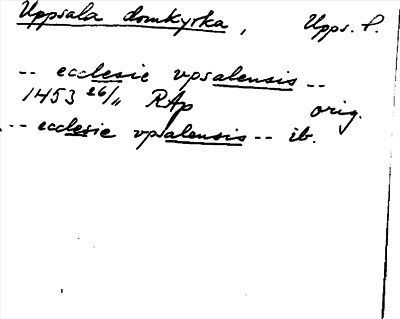 Uppsala domkyrka, Upps. l.
-- ecclesie vpsalensis --
1453 26/11 RAp orig.
-- ecclesie vpsalensis -- ib.